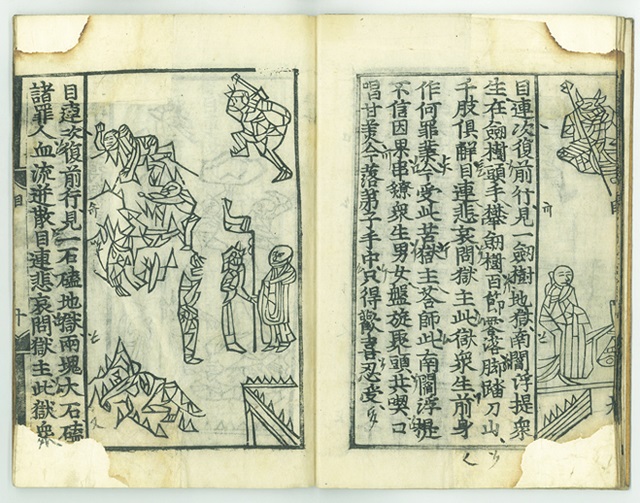 目連次復前行見一劒樹地獄南閻浮提衆
生在劒樹頭手攀劒樹百節零落脚踏刀山
千肢俱解目連悲哀問獄主此獄衆生前身
作何罪業今受此苦獄主荅師此南閻浮提
不信因果串鐐衆生男女盤旋聚頭共喫口
唱甘美今落弟子手中只得歡喜忍受
目連次復前行見一石磕地獄兩塊大石磕
諸罪人血流迸散目連悲哀問獄主此獄衆
目
十